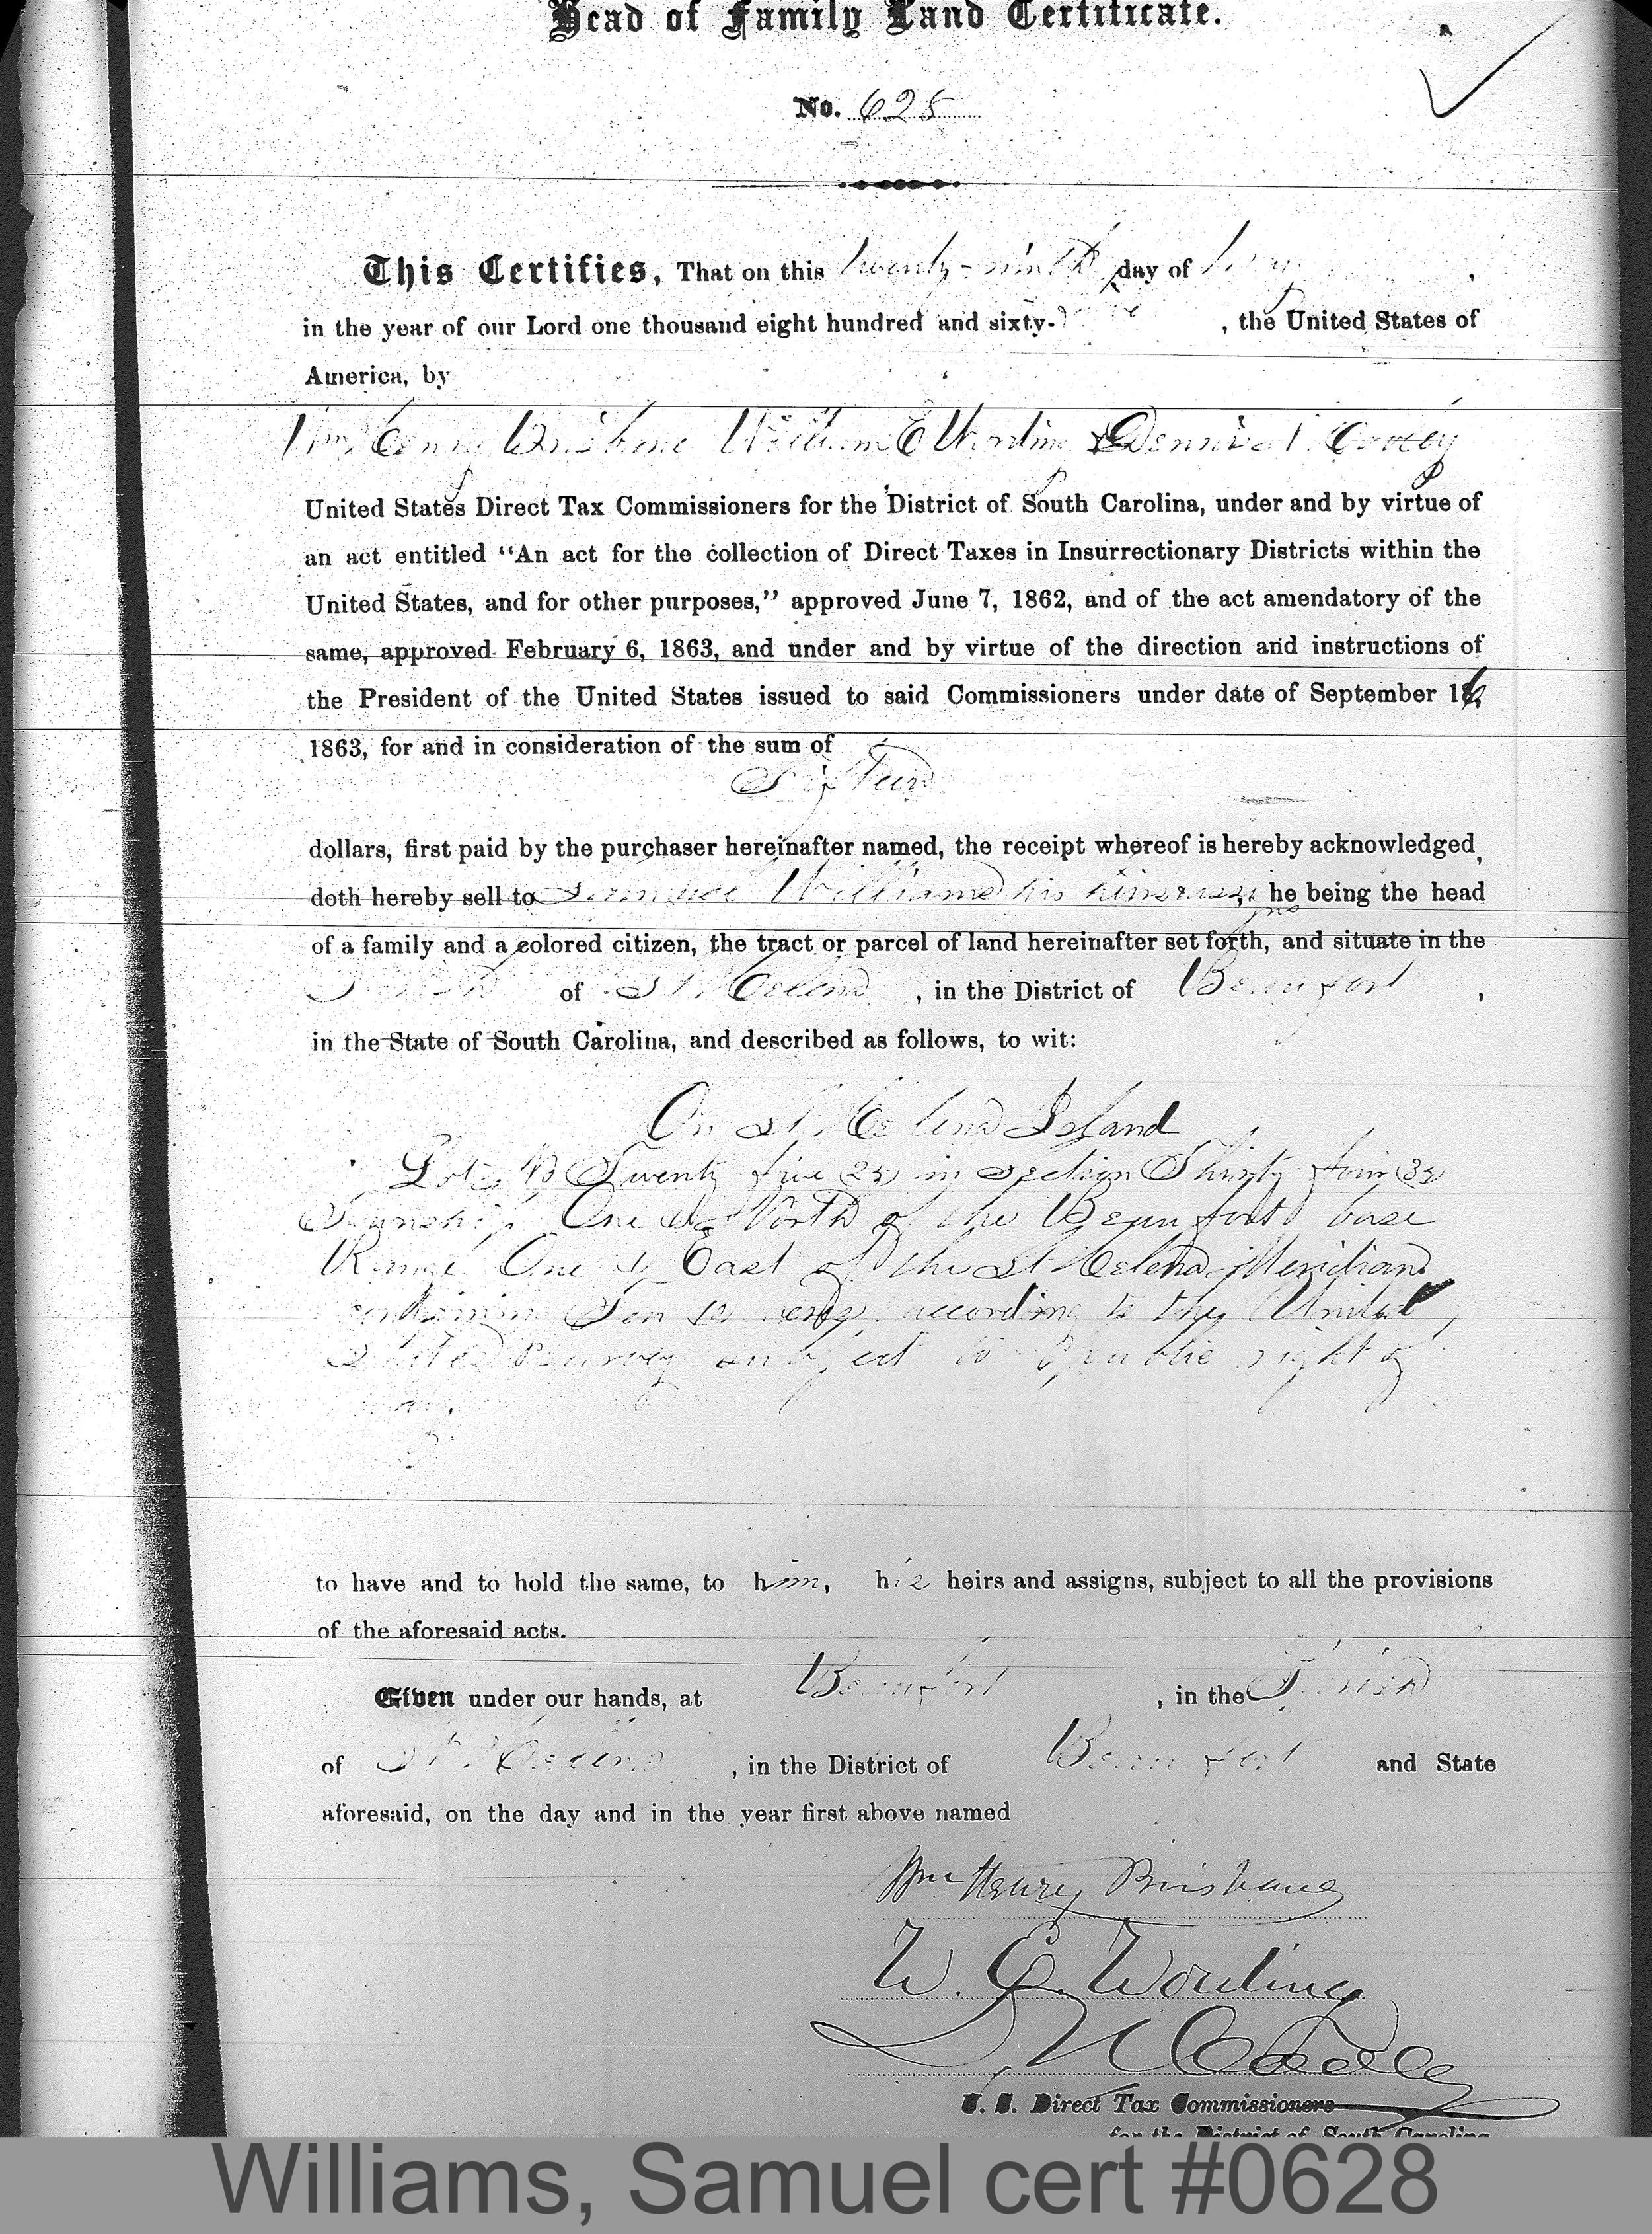 Head of Family Land Certificate.
No. 628
This Certifies, That on this twenty-ninth day of
in the year of our Lord one thousand eight hundred and sixty- , the United States of
America, by
Wm Henry Brisbane William E Wording & Dennis N. Cooley
United States Direct Tax Commissioners for the District of South Carolina, under and by virtue of
an act entitled “An act for the collection of Direct Taxes in Insurrectionary Districts within the
United States, and for other purposes,” approved June 7, 1862, and of the act amendatory of the
same, approved February 6, 1863, and under and by virtue of the direction and instructions of
the President of the United States issued to said Commissioners under date of September 16
1863, for and in consideration of the sum of
Sixteen
dollars, first paid by the purchaser hereinafter named, the receipt whereof is hereby acknowledged,
doth hereby sell to Samuel Williams his heirs & assigns, he being the head
of a family and a colored citizen, the tract or parcel of land hereinafter set forth, and situate in the
Parish of St Helena , in the District of Beaufort ,
in the State of South Carolina, and described as follows, to wit:
On St Helena Island
Lot Twenty five (25) in Section Thirty
Township One North of the Beaufort base
Range One East of the St Helena Meridian
containing Ten 10 acres according to the United
States Survey subject to public right of
way.
to have and to hold the same, to him, his heirs and assigns, subject to all the provisions
of the aforesaid acts.
Given under our hands, at Beaufort , in the Parish
of St. Helena , in the District of Beaufort and State
aforesaid, on the day and in the year first above named
Wm Henry Brisbane
W. E. Wording
D N Cooley
U. S. Direct Tax Commissioners
for the District of South Carolina
Williams, Samuel cert #0628